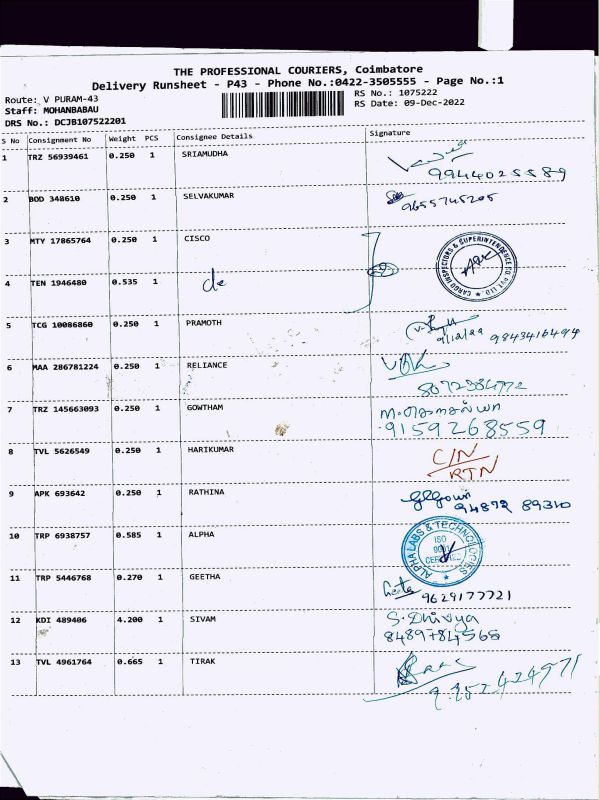 THE PROFESSIONAL COURIERS, Coimbatore
Delivery Runsheet - P43 - Phone No.:0422-3505555 - Page No.:1
Route: V PURAM-43
RS No.: 1075222
Staff: MOHANBABAU
RS Date: 09-Dec-2022
DRS No.: DCJB107522201
S No Consignment No Weight PCS Consignee Details Signature
1 TRZ 56939461 0.250 1 SRIAMUDHA
9944025589
2 BOD 348610 0.250 1 SELVAKUMAR
9655745205
3 MTY 17865764 0.250 1 CISCO
CARGO INSPECTORS & SUPERINTENDENCE CO. PVT. LTD.
4 TEN 1946480 0.535 1 do
5 TCG 10086860 0.250 1 PRAMOTH
9/12/22 9843416494
6 MAA 286781224 0.250 1 RELIANCE
8072384972
7 TRZ 145663093 0.250 1 GOWTHAM
9159268559
8 TVL 5626549 0.250 1 HARIKUMAR C/N
RTN
9 APK 693642 0.250 1 RATHINA
94872 89310
10 TRP 6938757 0.585 1 ALPHA
ALPHA LABS & TECHNOLOGIES
ISO
9001
CERTIFIED
11 TRP 5446768 0.270 1 GEETHA Geetha
9629177721
12 KDI 489406 4.200 1 SIVAM S. Dhivya
8489784565
13 TVL 4961764 0.665 1 TIRAK